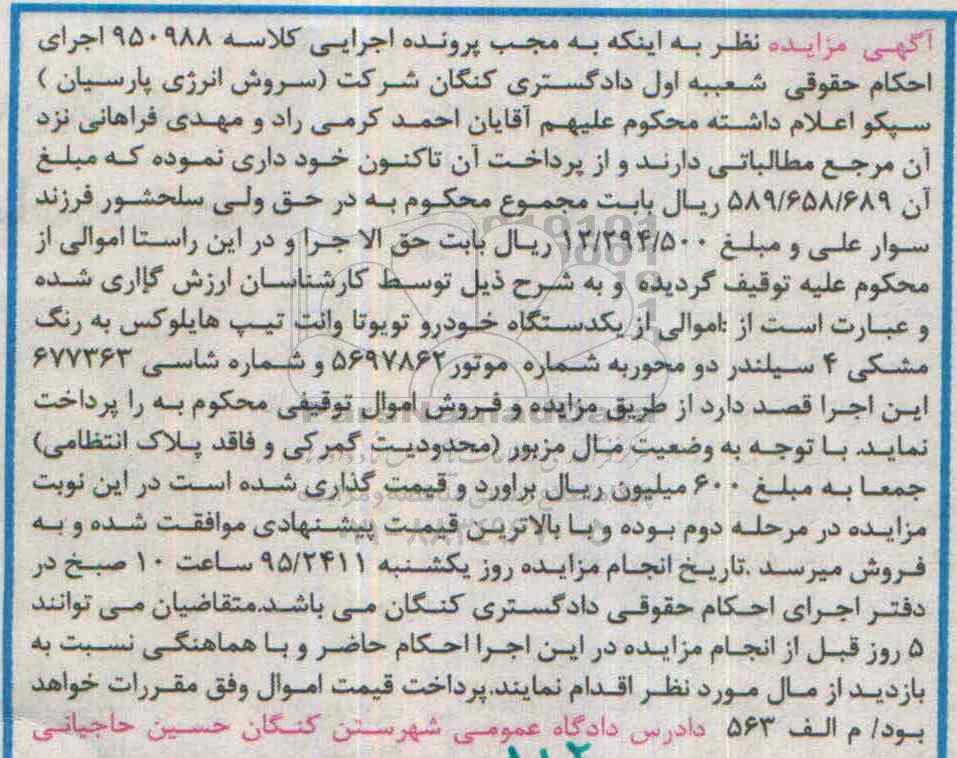 آگهی مزایده نظر به اینکه به مجب پرونده اجرایی کلاسه ۹۵۰۹۸۸ اجرای
احکام حقوقی شعببه اول دادگستری کنگان شرکت (سروش انرژی پارسیان )
سپکو اعلام داشته محکوم علیهم آقایان احمد کرمی راد و مهدی فراهانی نزد
آن مرجع مطالباتی دارند و از پرداخت آن تاکنون خود داری نموده که مبلغ
آن ۵۸۹/۶۵۸/۶۸۹ ریال بابت مجموع محکوم به در حق ولی سلحشور فرزند
سوار علی و مبلغ ۱۲/۲۹۴/۵۰۰ ریال بابت حق الا جرا و در این راستا اموالی از
محکوم علیه توقیف گردیده و به شرح ذیل توسط کارشناسان ارزش گااری شده
و عبارت است از :اموالی از یکدستگاه خودرو تویوتا وانت تیپ هایلوکس به رنگ
مشکی ۴ سیلندر دو محوربه شماره موتور ۵۶۹۷۸۶۲ و شماره شاسی ۶۷۷۳۶۳
این اجرا قصد دارد از طریق مزایده و فروش اموال توقیفی محکوم به را پرداخت
نماید. با توجه به وضعیت مال مزبور (محدودیت گمرکی و فاقد پلاک انتظامی)
جمعا به مبلغ ۶۰۰ میلیون ریال براورد و قیمت گذاری شده است در این نوبت
مزایده در مرحله دوم بوده و با بالاترین قیمت پیشنهادی موافقت شده و به
فروش میرسد .تاریخ انجام مزایده روز یکشنبه ۹۵/۲۴۱۱ ساعت ۱۰ صبخ در
دفتر اجرای احکام حقوقی دادگستری کنگان می باشد.متقاضیان می توانند
۵ روز قبل از انجام مزایده در این اجرا احکام حاضر و با هماهنگی نسبت به
بازدید از مال مورد نظر اقدام نمایند.پرداخت قیمت اموال وفق مقررات خواهد
بود/ م الف ۵۶۳ دادرس دادگاه عمومی شهرستن کنگان حسین حاجیانی